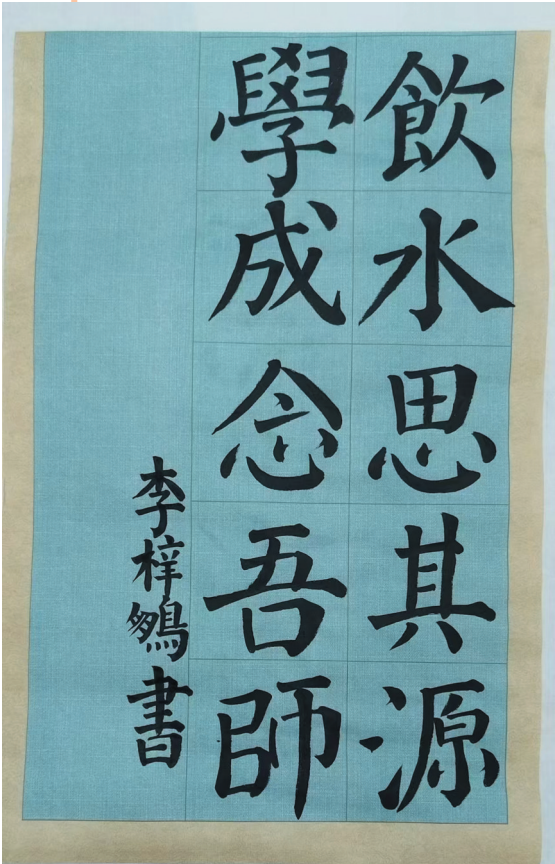 飲水思其源
學成念吾師
李梓鶵書